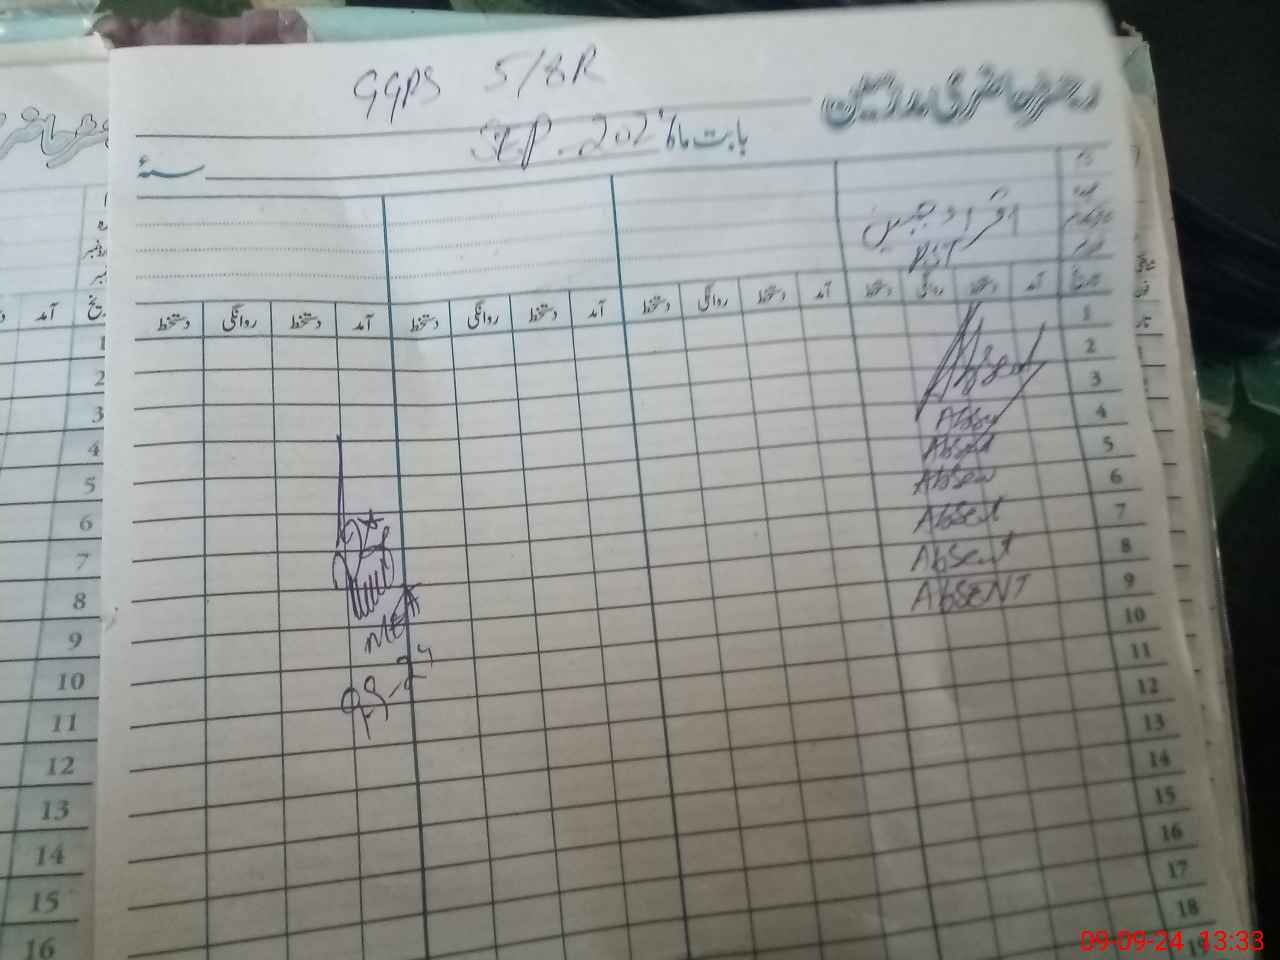 GGPS 5/8R
رجسٹر حاضری مدرسین
SEP. 2024 بابت ماہ
سنہ
نام
عہدہ
اقراء جبیں
PST
تاریخ آمد دستخط روانگی دستخط آمد دستخط روانگی دستخط آمد دستخط روانگی دستخط آمد دستخط روانگی دستخط
1
2 Absent
3
4 Absen
5 Absent
6 Absen
7 Absent
8 Absent
9 AbSENT
10
11
12
13
14
15
16
17
18
19
MEA
آمد
تاریخ
1
2
3
4
5
6
7
8
9
10
11
12
13
14
15
16
09-09-24 13:33